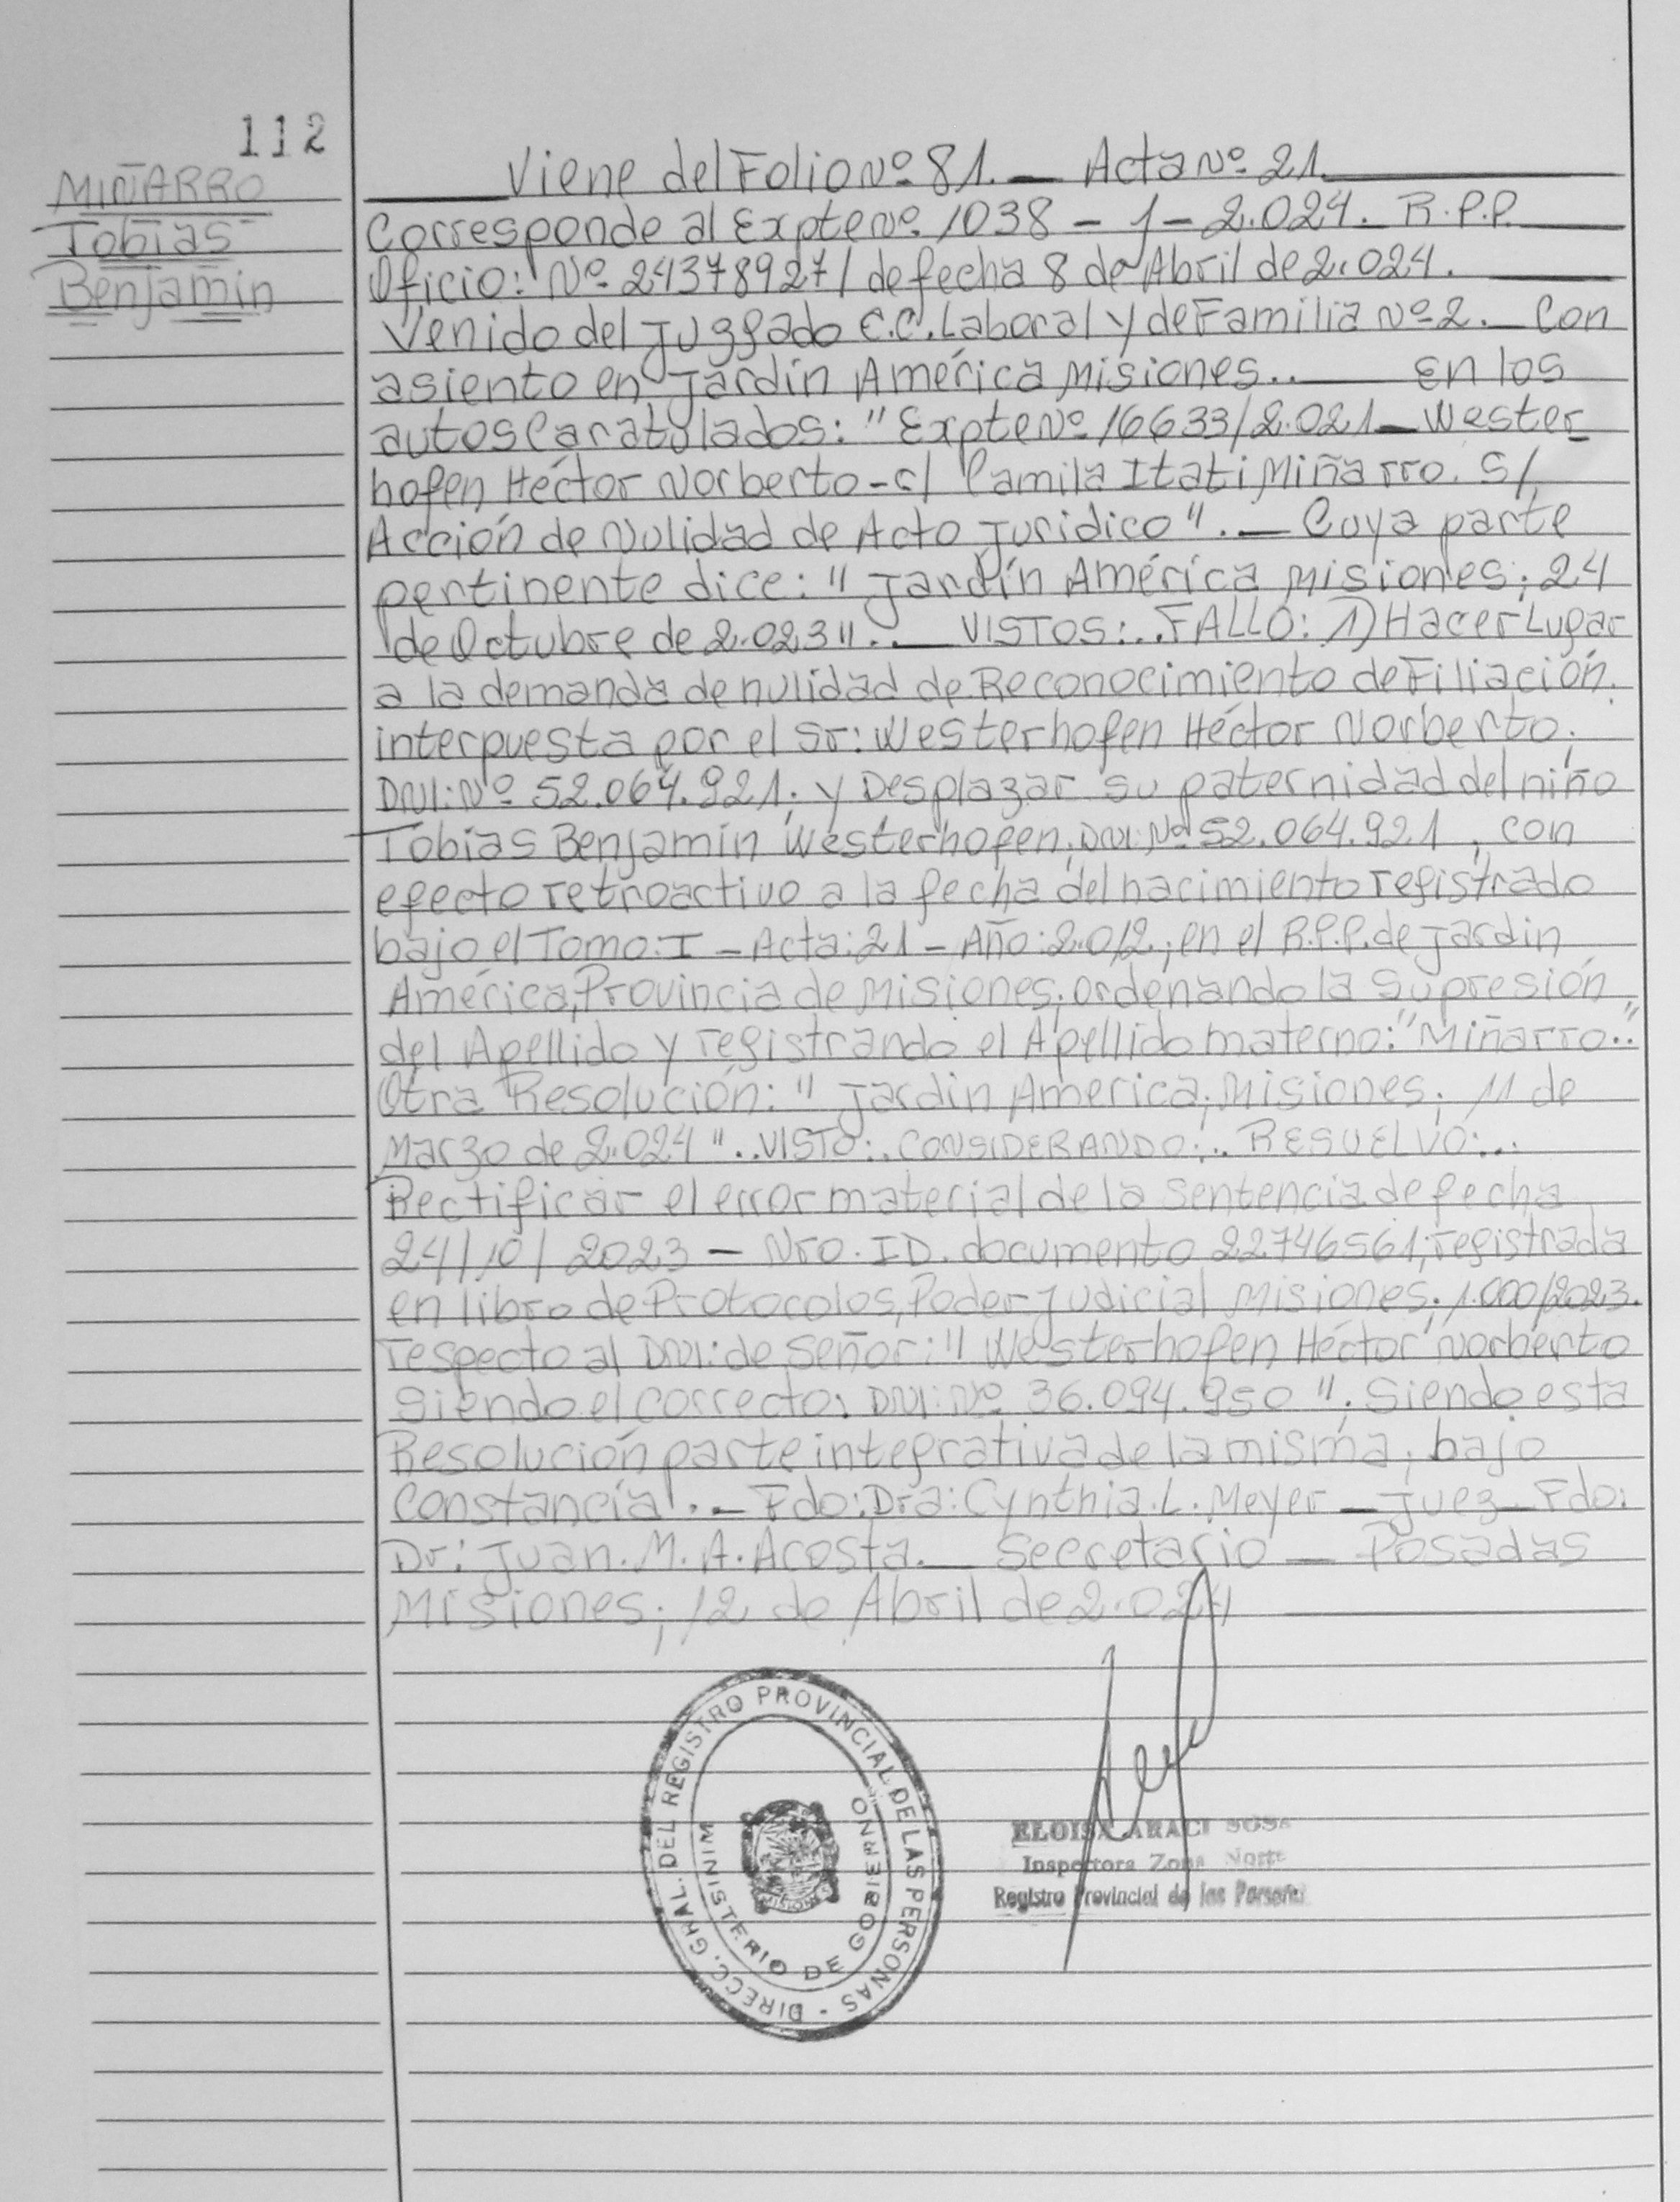 112
MIÑARRO
Tobías
Benjamín
Viene del Folio Nº 81. — Acta Nº 21.
Corresponde al Expte Nº 1038 - 1 - 2.024. R.P.P.
Oficio: Nº 24378927/ de fecha 8 de Abril de 2.024.
Venido del Juzgado C.C. Laboral y de Familia Nº 2. — Con
asiento en Jardín América Misiones.. — En los
autos Caratulados: "Expte Nº 16633/2.021 — Wester
hofen Héctor Norberto - c/ Camila Itati Miñarro. S/
Acción de Nulidad de Acto Jurídico". — Cuya parte
pertinente dice: " Jardín América Misiones; 24
de Octubre de 2.023". — VISTOS:.. FALLO: 1) Hacer Lugar
a la demanda de nulidad de Reconocimiento de Filiación.
interpuesta por el Sr: Westerhofen Héctor Norberto;
DNI: Nº 52.064.921; y Desplazar su paternidad del niño
Tobías Benjamín Westerhofen; DNI: Nº 52.064.921, con
efecto retroactivo a la fecha del nacimiento registrado
bajo el Tomo: I - Acta: 21 - Año: 2.012; en el R.P.P. de Jardín
América, Provincia de Misiones; ordenando la Supresión
del Apellido y registrando el Apellido materno: "Miñarro.."
Otra Resolución: " Jardin America; Misiones; 11 de
Marzo de 2.024".. VISTO:. CONSIDERANDO:.. RESUELVO:..
Rectificar el error material de la Sentencia de fecha
24/10/2023 — Nro. ID. documento 22746561; registrada
en libro de Protocolos, Poder Judicial Misiones; 1.000/2023.
respecto al DNI: de Señor: " Westerhofen Héctor Norberto
Siendo el Correcto: DNI: Nº 36.094.950 "; Siendo esta
Resolución parte integrativa de la misma; bajo
Constancia . — Fdo: Dra: Cynthia. L. Meyer — Juez — Fdo:
Dr: Juan. M. A. Acosta. — Secretario — Posadas
Misiones; 12 de Abril de 2.024
DIRECC. GRAL. DEL REGISTRO PROVINCIAL DE LAS PERSONAS -
MINISTERIO DE GOBIERNO
MISIONES
ELOISA ARACI SOSA
Inspectora Zona Norte
Registro Provincial de las Personas